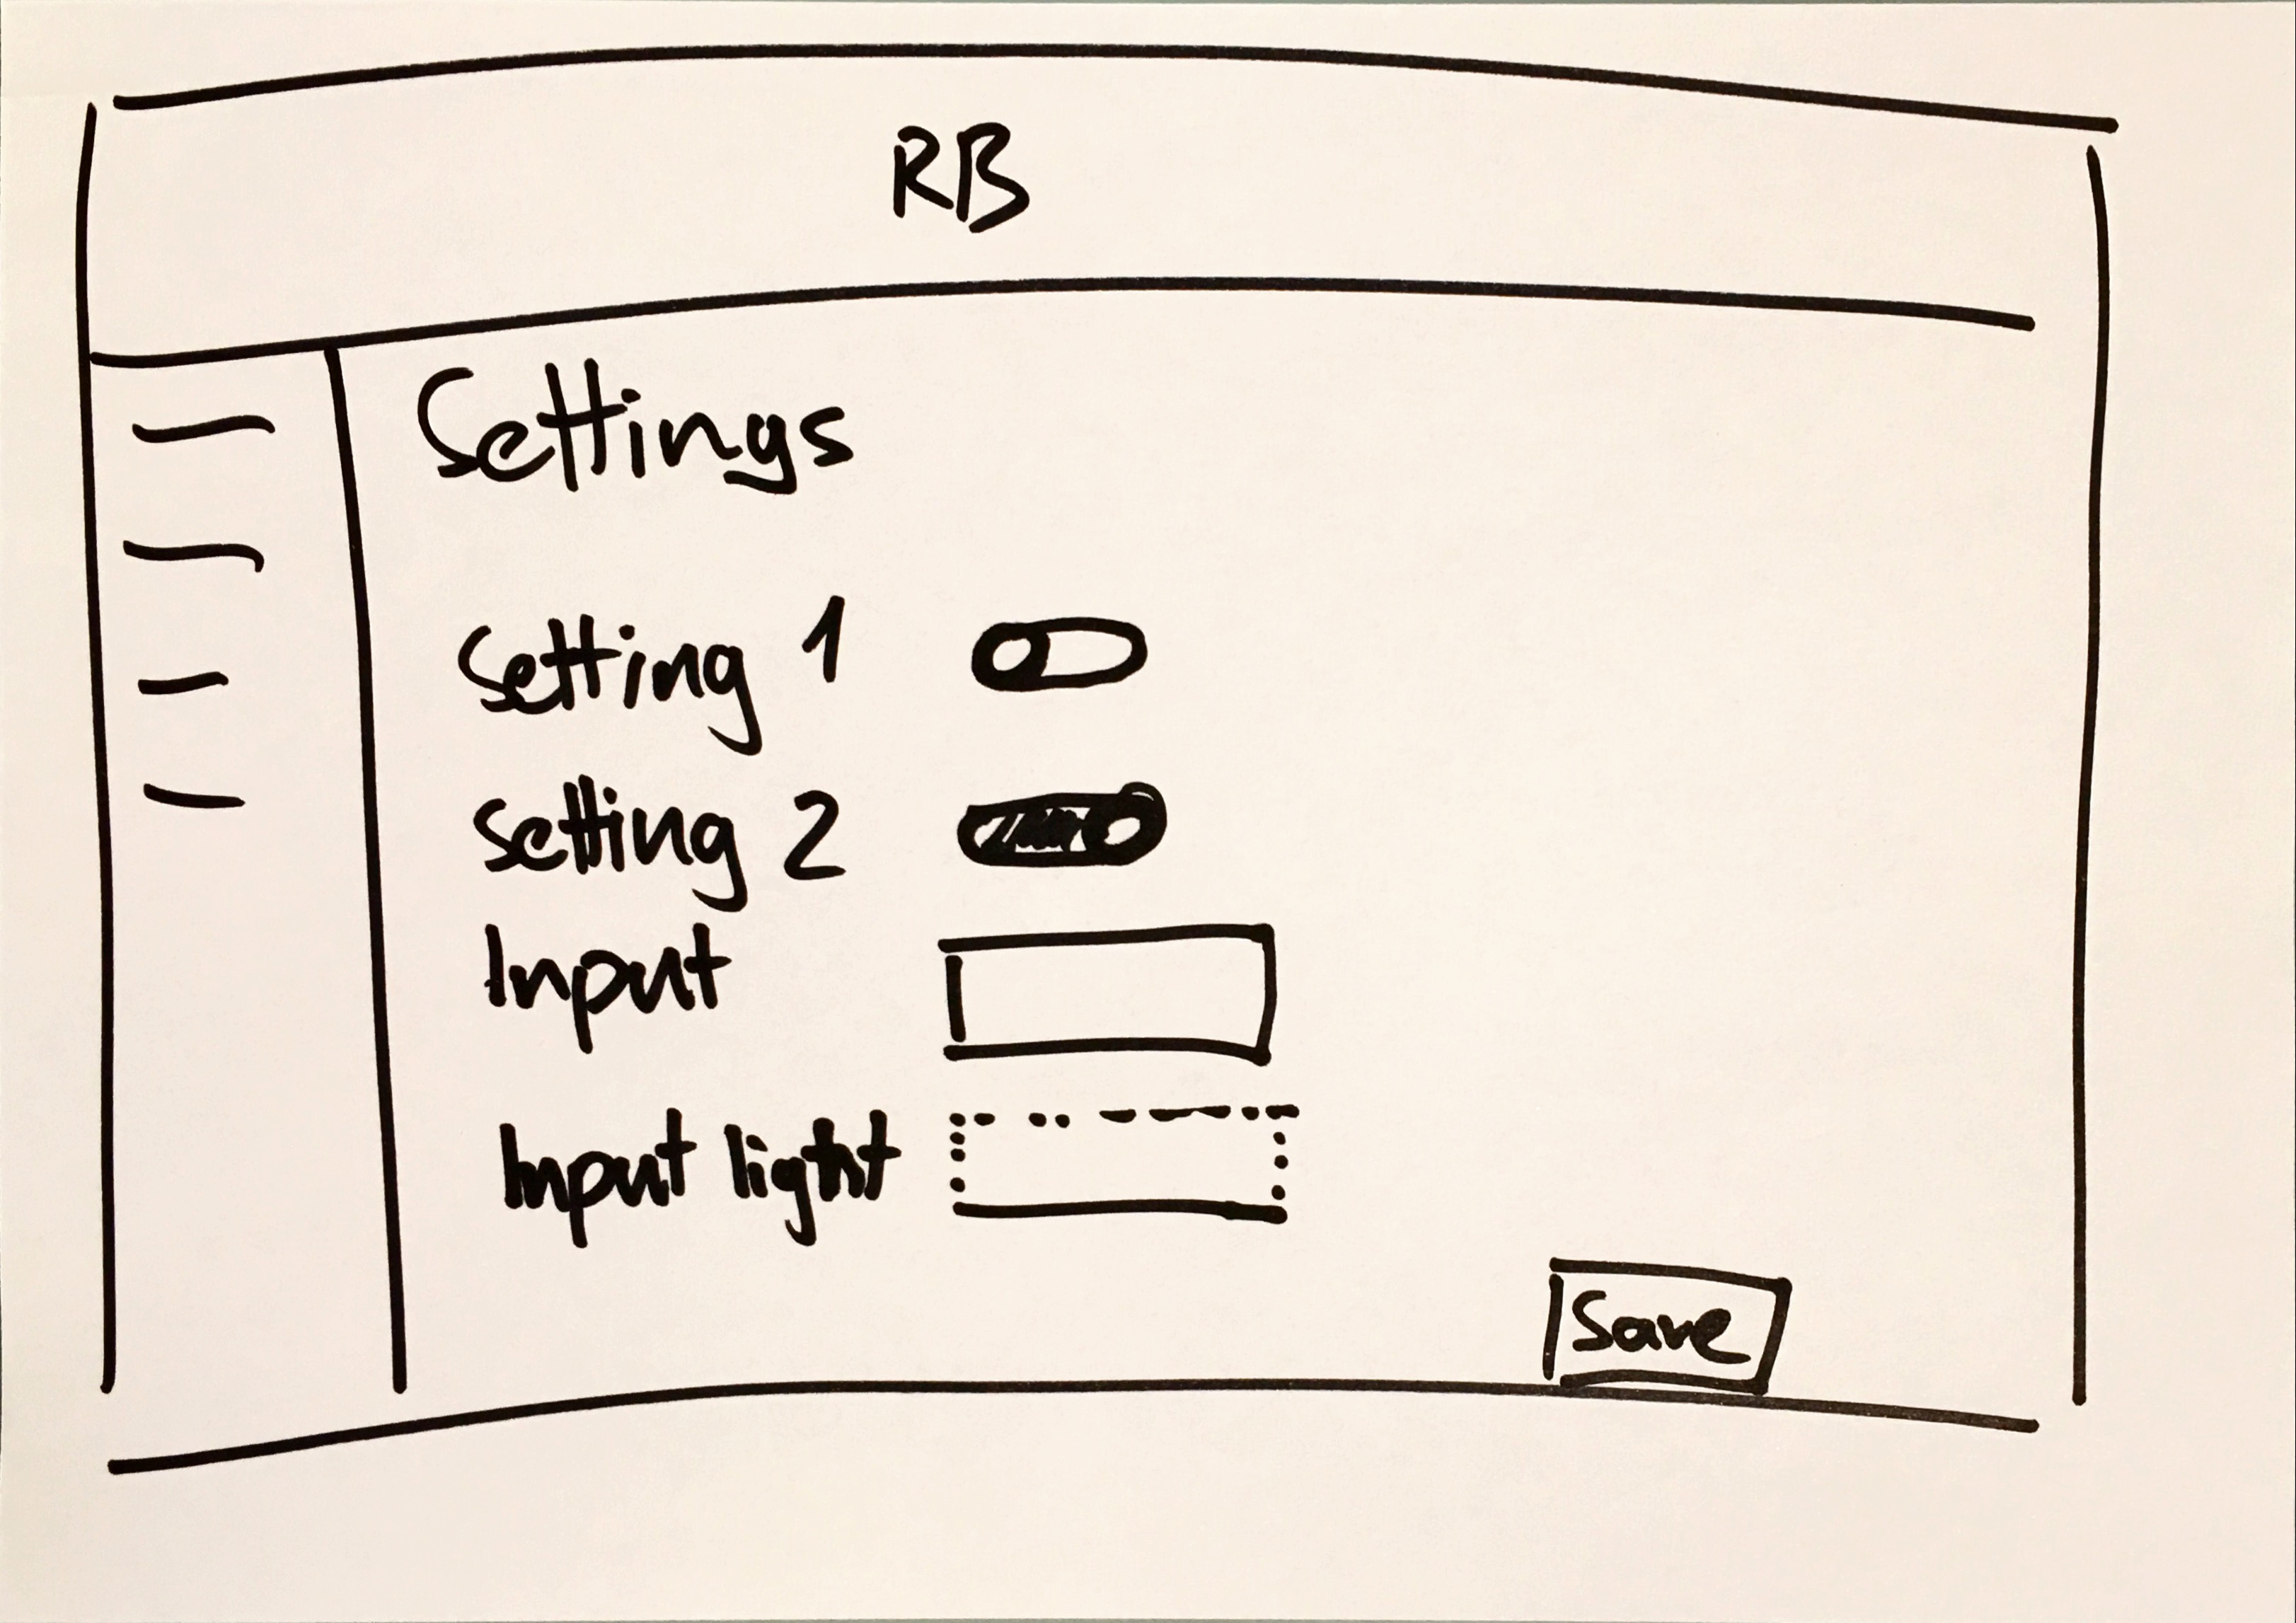 RB
Settings
Setting 1
Setting 2
Input
Input light
Save